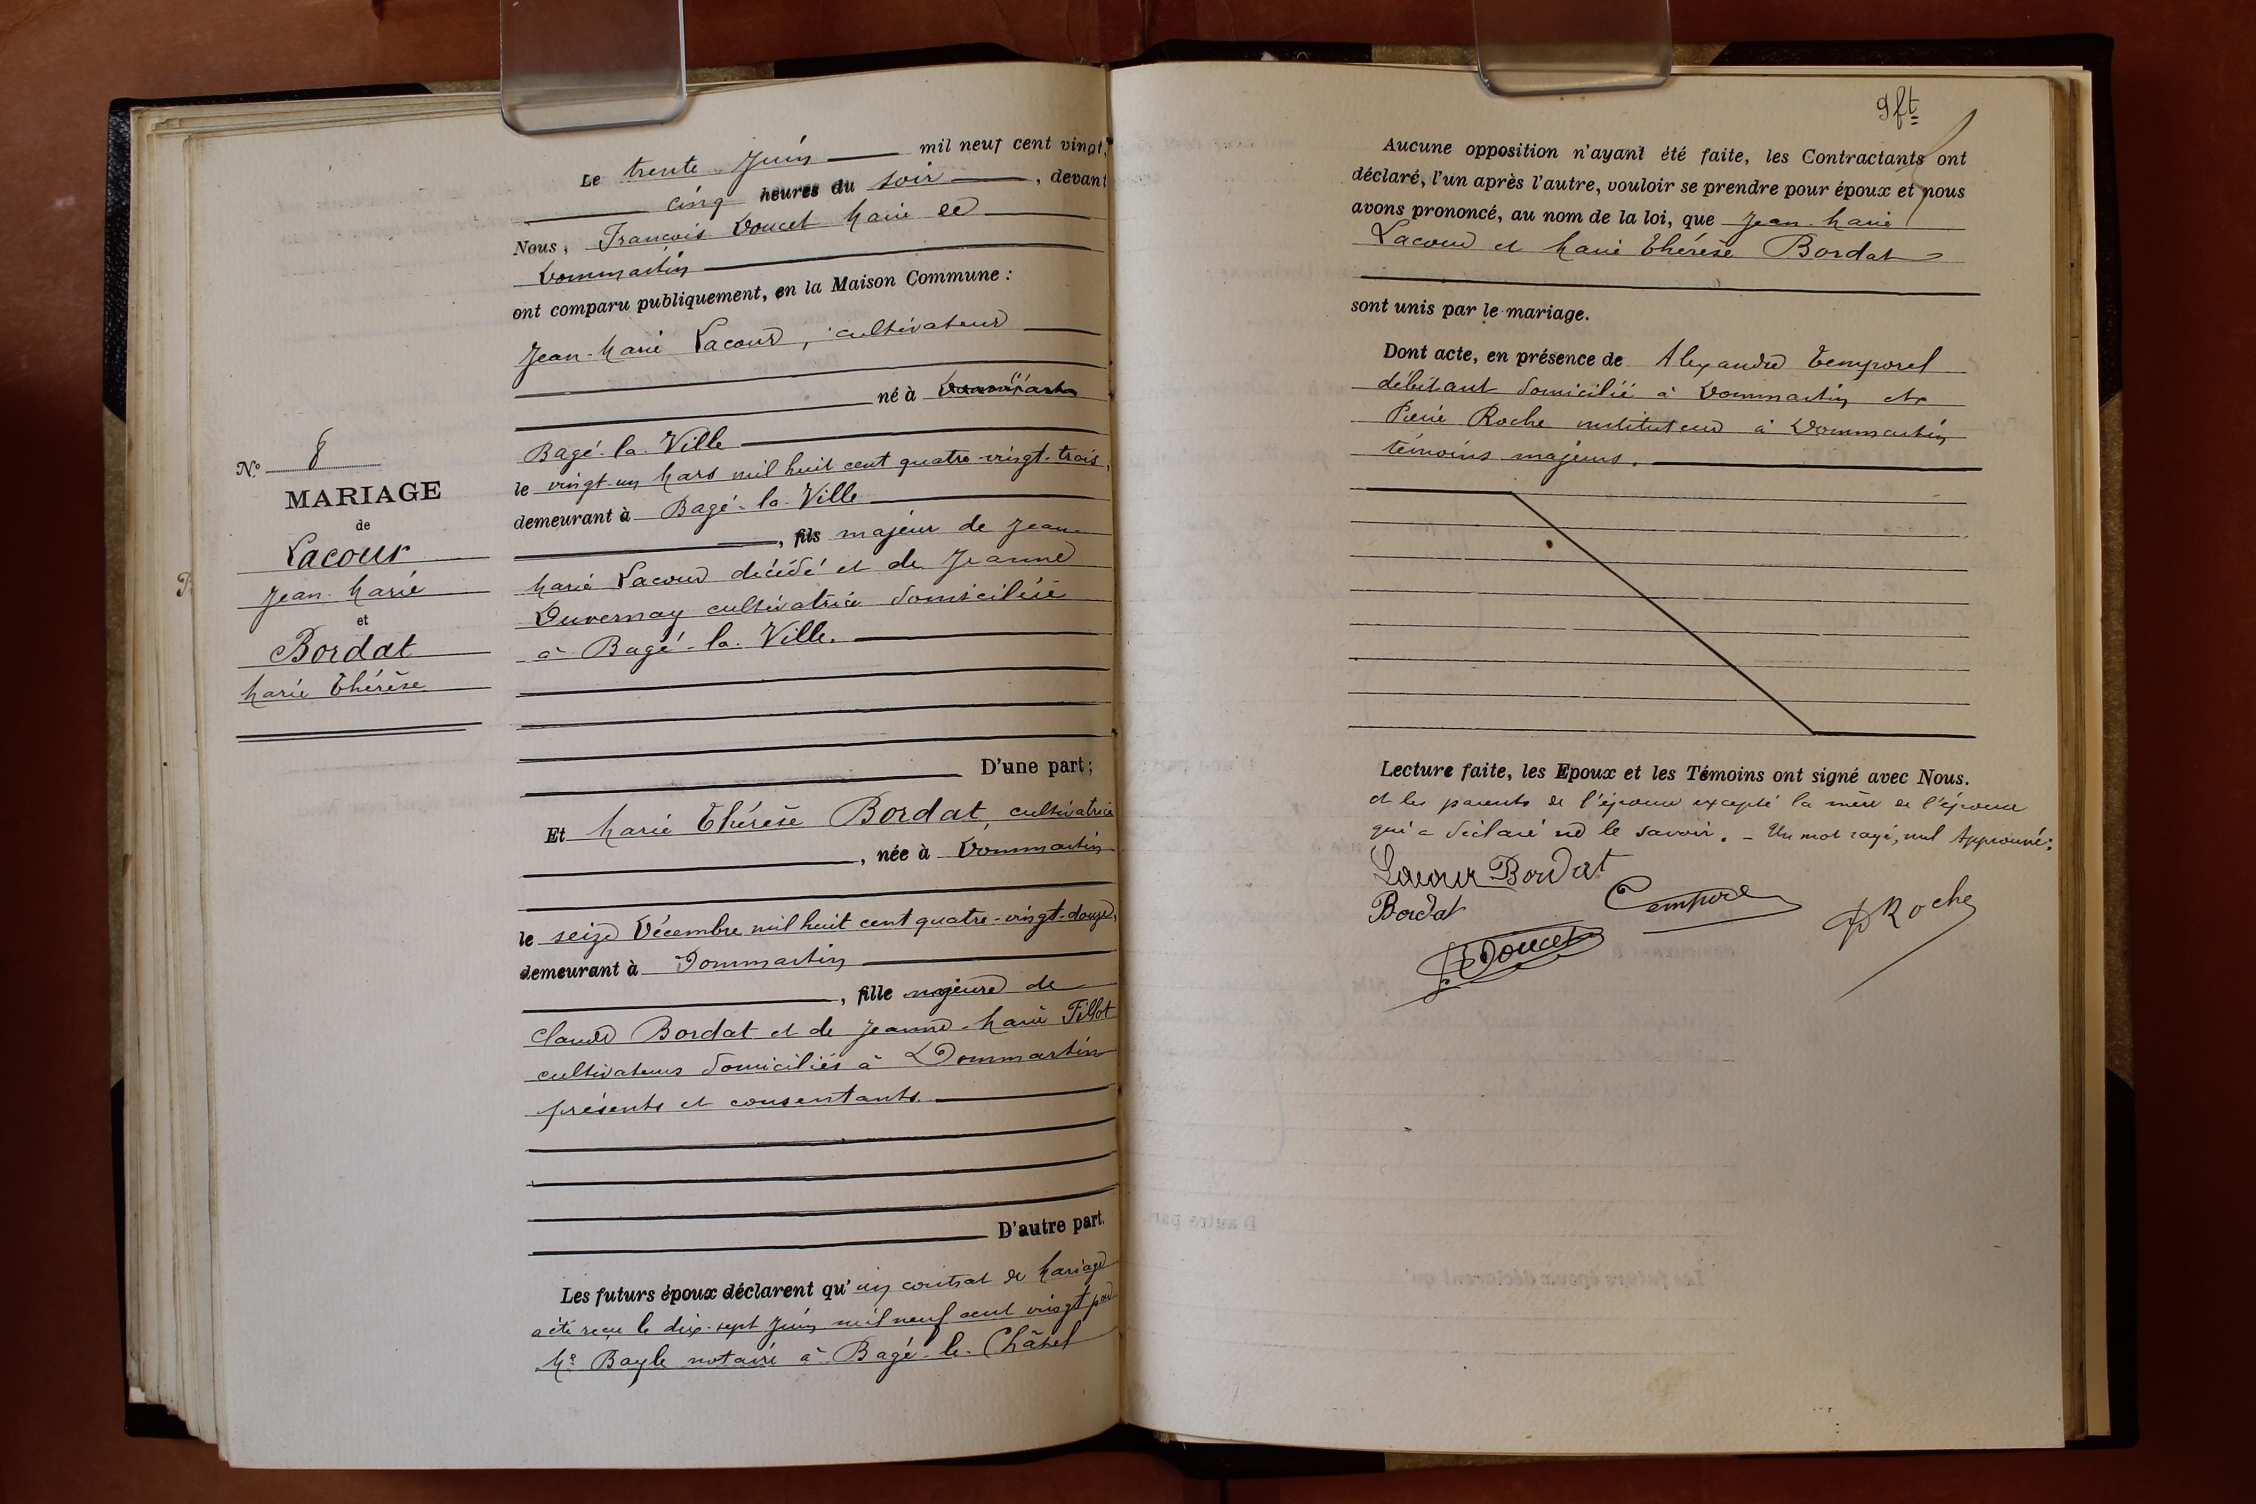 9ft
N° 8
MARIAGE
de
Lacour
Jean-Marie
et
Bordat
Marie Thérèse
Le trente Juin mil neuf cent vingt,
cinq heures du soir, devant
Nous, François Doucet Maire de
Dommartin
ont comparu publiquement, en la Maison Commune :
Jean-Marie Lacour, cultivateur
né à
Bagé-la-Ville
le vingt-un Mars mil huit cent quatre-vingt-trois,
demeurant à Bagé-la-Ville
, fils majeur de Jean
Marie Lacour décédé et de Jeanne
Duvernay cultivatrice domiciliée
à Bagé-la-Ville.
D'une part ;
Et Marie Thérèse Bordat, cultivatrice
, née à Dommartin
le seize Décembre mil huit cent quatre-vingt-douze,
demeurant à Dommartin
, fille majeure de
Claude Bordat et de Jeanne-Marie Fillot
cultivateurs domiciliés à Dommartin
présents et consentants.
D'autre part.
Les futurs époux déclarent qu'un contrat de Mariage
a été reçu le dix-sept Juin mil neuf cent vingt par
Me Bayle notaire à Bagé-le-Châtel
Aucune opposition n'ayant été faite, les Contractants ont
déclaré, l'un après l'autre, vouloir se prendre pour époux et nous
avons prononcé, au nom de la loi, que Jean-Marie
Lacour et Marie Thérèse Bordat
sont unis par le mariage.
Dont acte, en présence de Alexandre Temporel
débitant domicilié à Dommartin et
Pierre Roche instituteur à Dommartin
témoins majeurs.
Lecture faite, les Epoux et les Témoins ont signé avec Nous.
et les parents de l'épouse excepté la mère de l'épouse
qui a déclaré ne le savoir. - Un mot rayé, nul Approuvé :
Lacour Bordat
Bordat
Temporel
P Roche
F Doucet